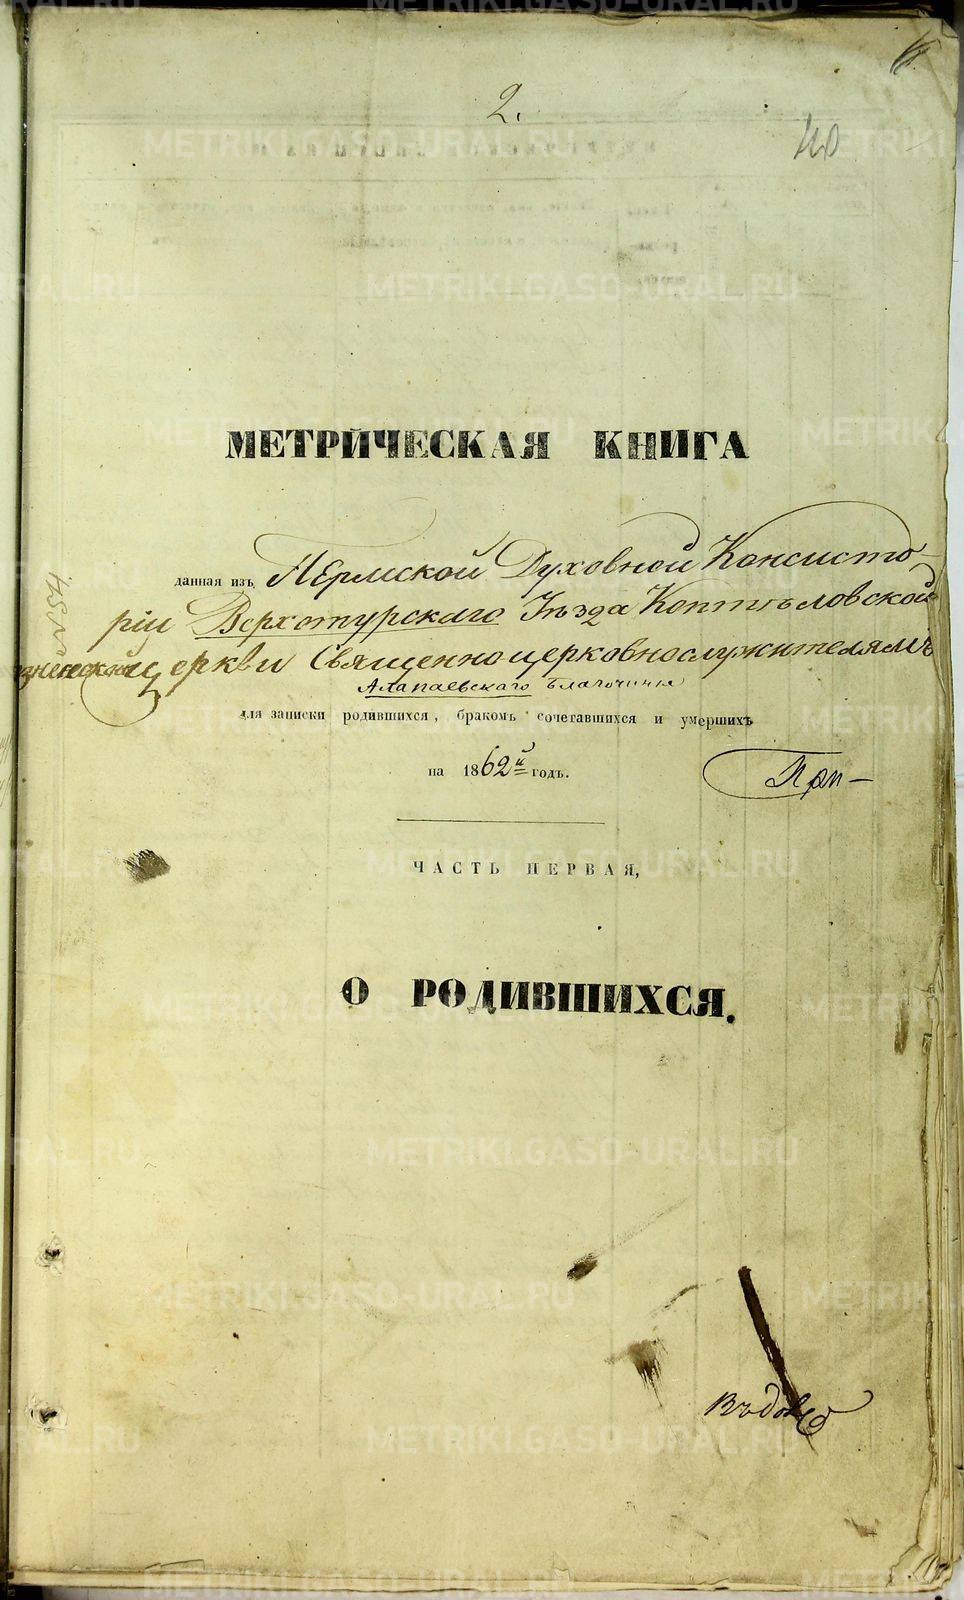 2.
40
МЕТРИЧЕСКАЯ КНИГА
данная изъ Пермской Духовной Консисто-
ріи Верхотурскаго Уѣзда Коптѣловской
церкви Священноцерковнослужителямъ
Алапаевскаго благочинія
для записки родившихся, бракомъ сочетавшихся и умершихъ
на 1862й годъ.
При-
ЧАСТЬ ПЕРВАЯ,
О РОДИВШИХСЯ.
METRIKI.GASO-URAL.RU